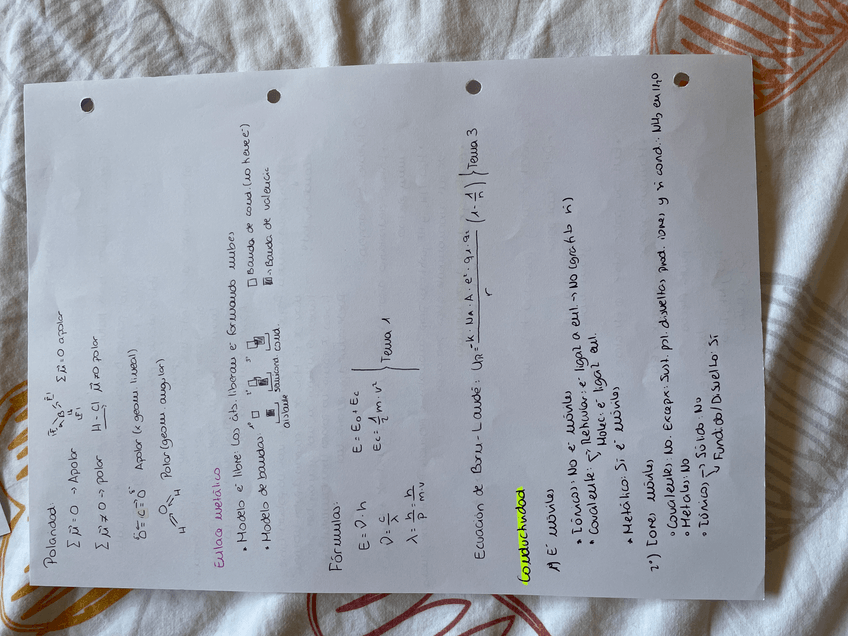 Polaridad:
Σ μ⃗ = 0 → Apolar
Σ μ⃗ = 0 apolar
Σ μ⃗ ≠ 0 → polar
H - Cl μ⃗ ≠ 0 polar
O = C = O Apolar (x geom lineal)
H H Polar (geom angular)
Enlace metálico
• Modelo e⁻ libre: Los át. liberan e⁻ formando nubes
• Modelo de bandas: 1º 2º 3º
aislante semicond cond.
□ Banda de cond. (no heve e⁻)
Banda de valencia
Fórmulas:
E = ν · h
ν = c/λ
λ = h/p = h/m·v
E = E₀ + Ec
Ec = 1/2 m · v²
} Tema 1
Ecuación de Born - Landé: U_R = -k · N_A · A · e² · q₁ · q₂ / r (1 - 1/n) } Tema 3
Conductividad
1) E⁻ móviles
• Iónicos: No e⁻ móviles
• Covalente: Reticular: e⁻ ligad a enl. → No (grafito sí)
Molec: e⁻ ligad enl.
• Metálico: Sí e⁻ móviles
2º) Iones móviles
• Covalente: No. Excepc: Sust. pol. disueltas prod. iones y sí cond.: NH₃ en H₂O
• Metales: No
• Iónicos → Sólido: No
↘ Fundido/Disuelto: Sí